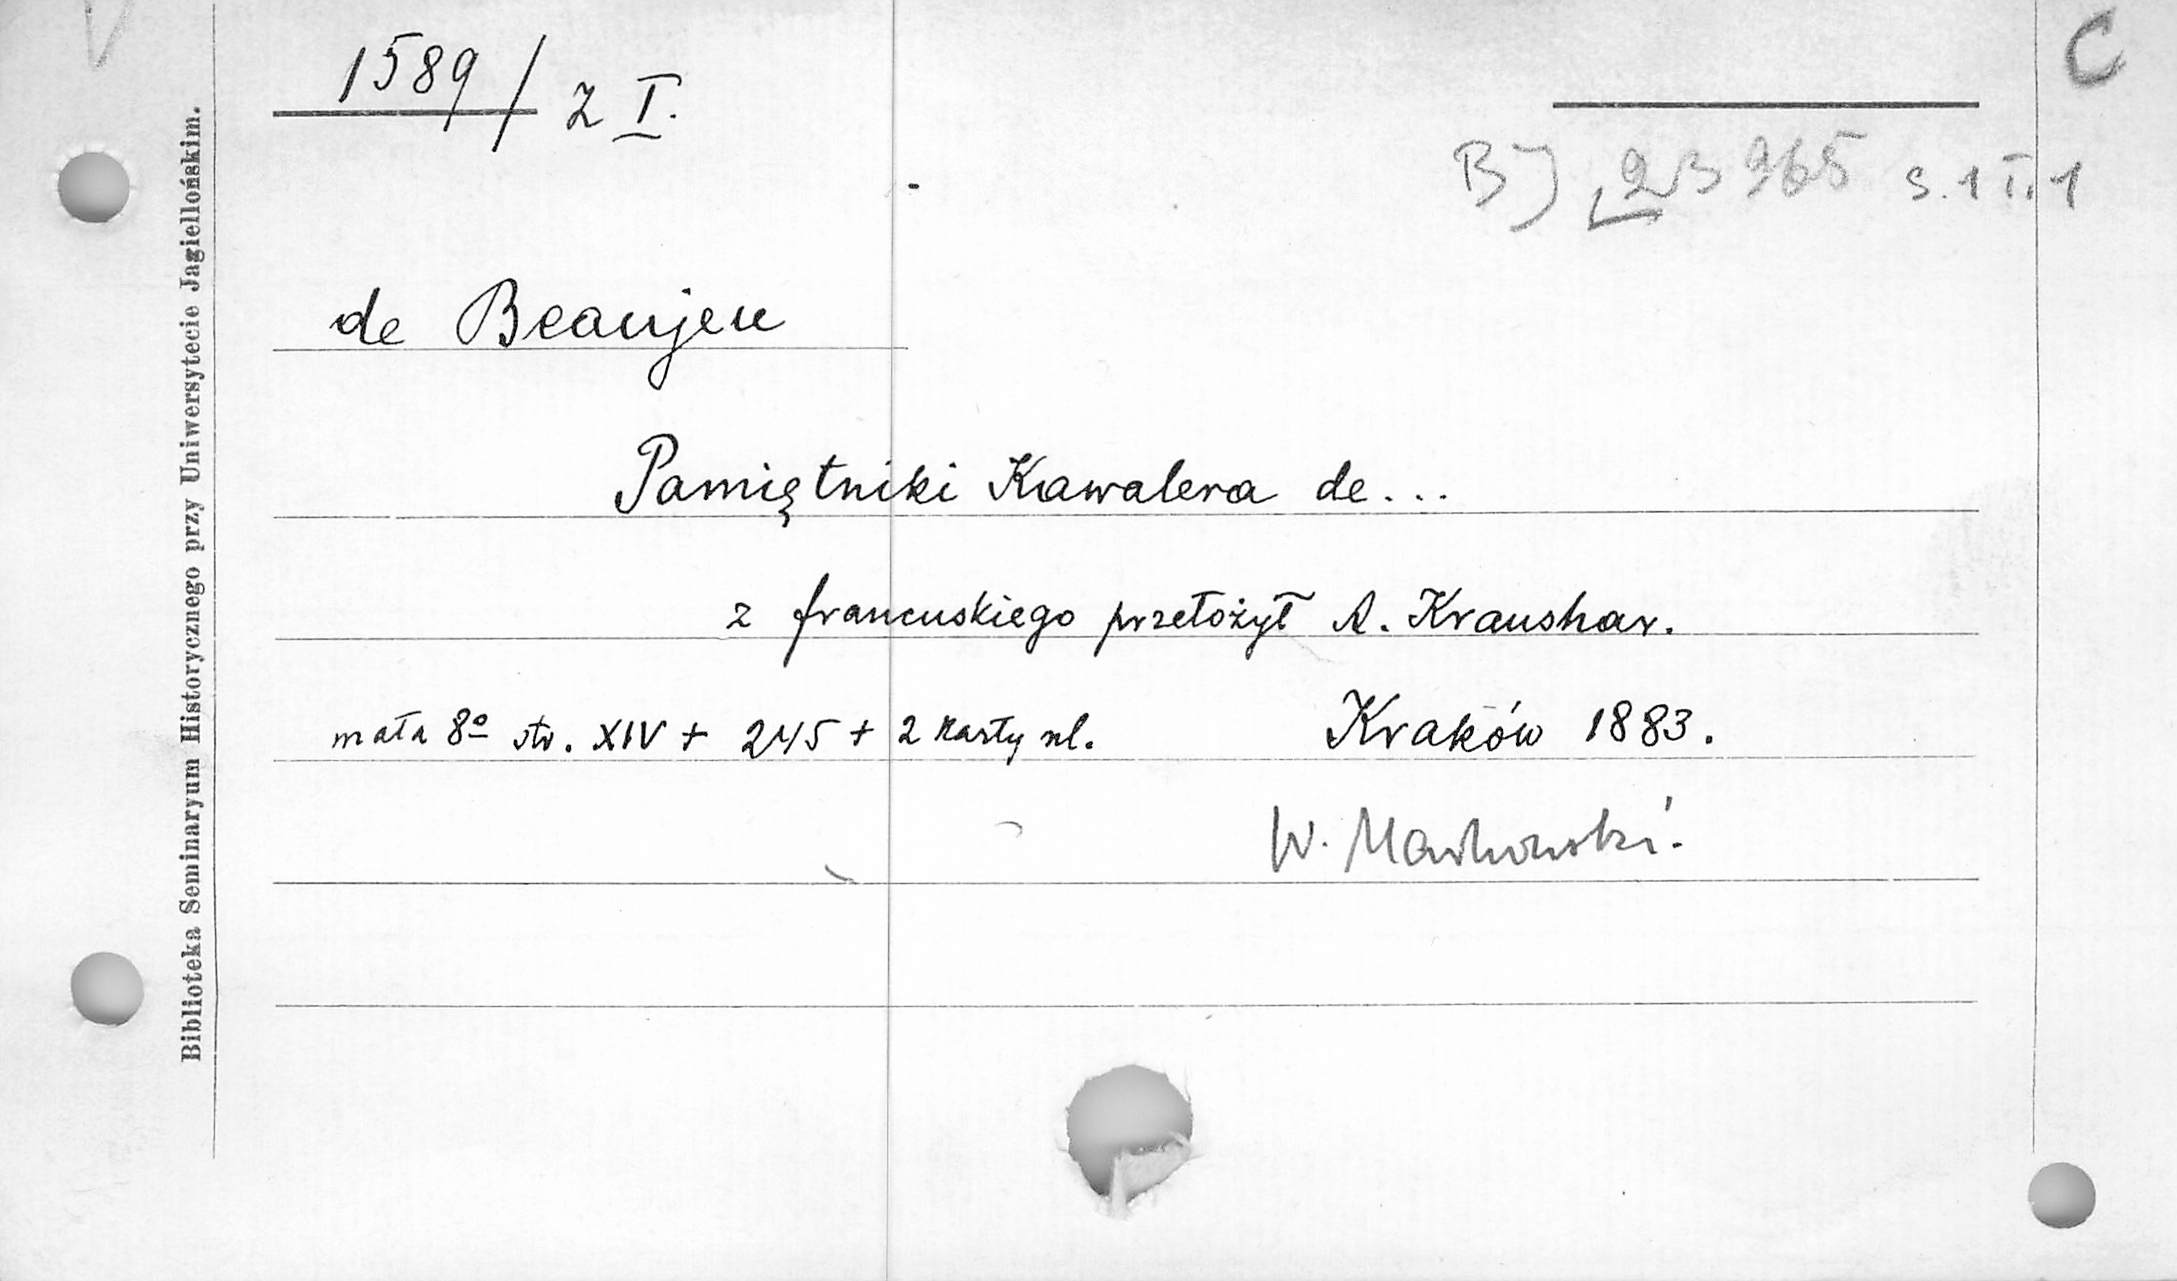 1589/z I.
C
BJ 23965
de Beaujeu
Pamiętniki Kawalera de...
z francuskiego przełożył A. Kraushar.
mała 8º str. XIV + 245 + 2 karty nl. Kraków 1883.
W.
Biblioteka Seminaryum Historycznego przy Uniwersytecie Jagiellońskim.